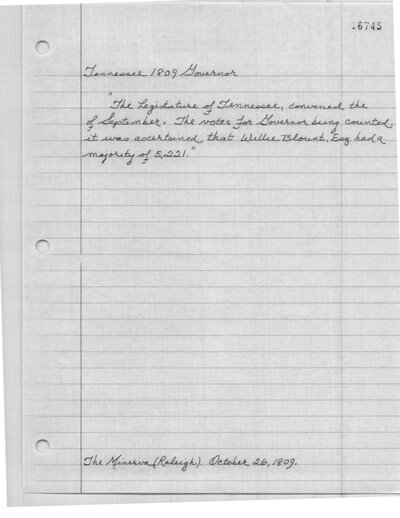 16745
Tennessee 1809 Governor
"The Legislature of Tennessee, convened the
of September. The votes for Governor being counted,
it was ascertained that Willie Blount, Esq had a
majority of 5,221."
The Minerva (Raleigh). October 26, 1809.